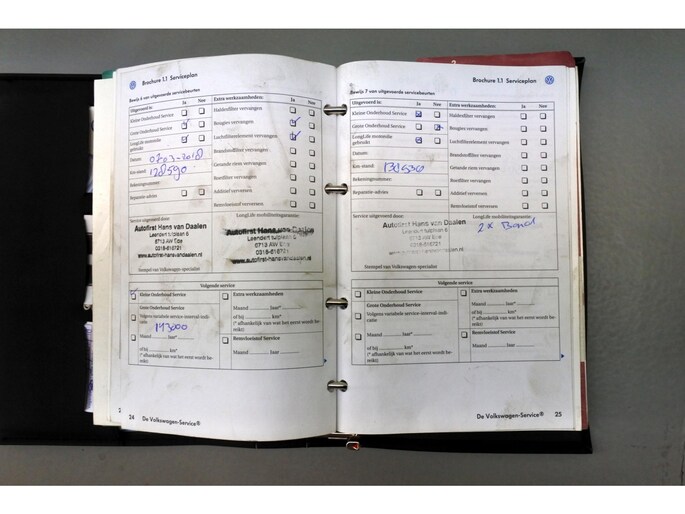 Brochure 1.1 Serviceplan
Bewijs 6 van uitgevoerde servicebeurten
Uitgevoerd is: Ja Nee
Kleine Onderhoud Service
Grote Onderhoud Service
LongLife motorolie
gebruikt
Datum: 07-03-2018
Km-stand: 128590
Rekeningnummer:
Reparatie-advies
Extra werkzaamheden: Ja Nee
Halderfilter vervangen
Bougies vervangen
Luchtfilterelement vervangen
Brandstoffilter vervangen
Getande riem vervangen
Roetfilter vervangen
Additief verversen
Service uitgevoerd door:
Autofirst Hans van Daalen
Leendert Butplaan 6
6713 AW Ede
0318-616721
www.autofirst-hansvandaalen.nl
Stempel van Volkswagen-specialist
LongLife mobiliteitsgarantie:
Autofirst Hans van Daalen
6713 AW Ede
0318-616721
www.autofirst-hansvandaalen.nl
Volgende service
Kleine Onderhoud Service
Grote Onderhoud Service
Volgens variabele service-interval-indi-
catie
143000
Maand ........ Jaar ........
of bij ........ km*
(* afhankelijk van wat het eerst wordt be-
reikt)
Extra werkzaamheden:
Maand ........ Jaar ........
of bij ........ km*
(* afhankelijk van wat het eerst wordt be-
reikt)
Remvloeistof Service
Maand ........ Jaar ........
24 De Volkswagen-Service®
Brochure 1.1 Serviceplan
Bewijs 7 van uitgevoerde servicebeurten
Uitgevoerd is: Ja Nee
Kleine Onderhoud Service
Grote Onderhoud Service
LongLife motorolie
gebruikt
Datum:
Km-stand: 138530
Rekeningnummer:
Reparatie-advies
Extra werkzaamheden: Ja Nee
Halderfilter vervangen
Bougies vervangen
Luchtfilterelement vervangen
Brandstoffilter vervangen
Getande riem vervangen
Roetfilter vervangen
Additief verversen
Service uitgevoerd door:
Autofirst Hans van Daalen
6713 AW Ede
0318-616721
www.autofirst-hansvandaalen.nl
Stempel van Volkswagen-specialist
LongLife mobiliteitsgarantie:
2x Band
Volgende service
Kleine Onderhoud Service
Grote Onderhoud Service
Volgens variabele service-interval-indi-
catie
Maand ........ Jaar ........
of bij ........ km*
(* afhankelijk van wat het eerst wordt be-
reikt)
Extra werkzaamheden:
Maand ........ Jaar ........
of bij ........ km*
(* afhankelijk van wat het eerst wordt be-
reikt)
Remvloeistof Service
Maand ........ Jaar ........
De Volkswagen-Service® 25